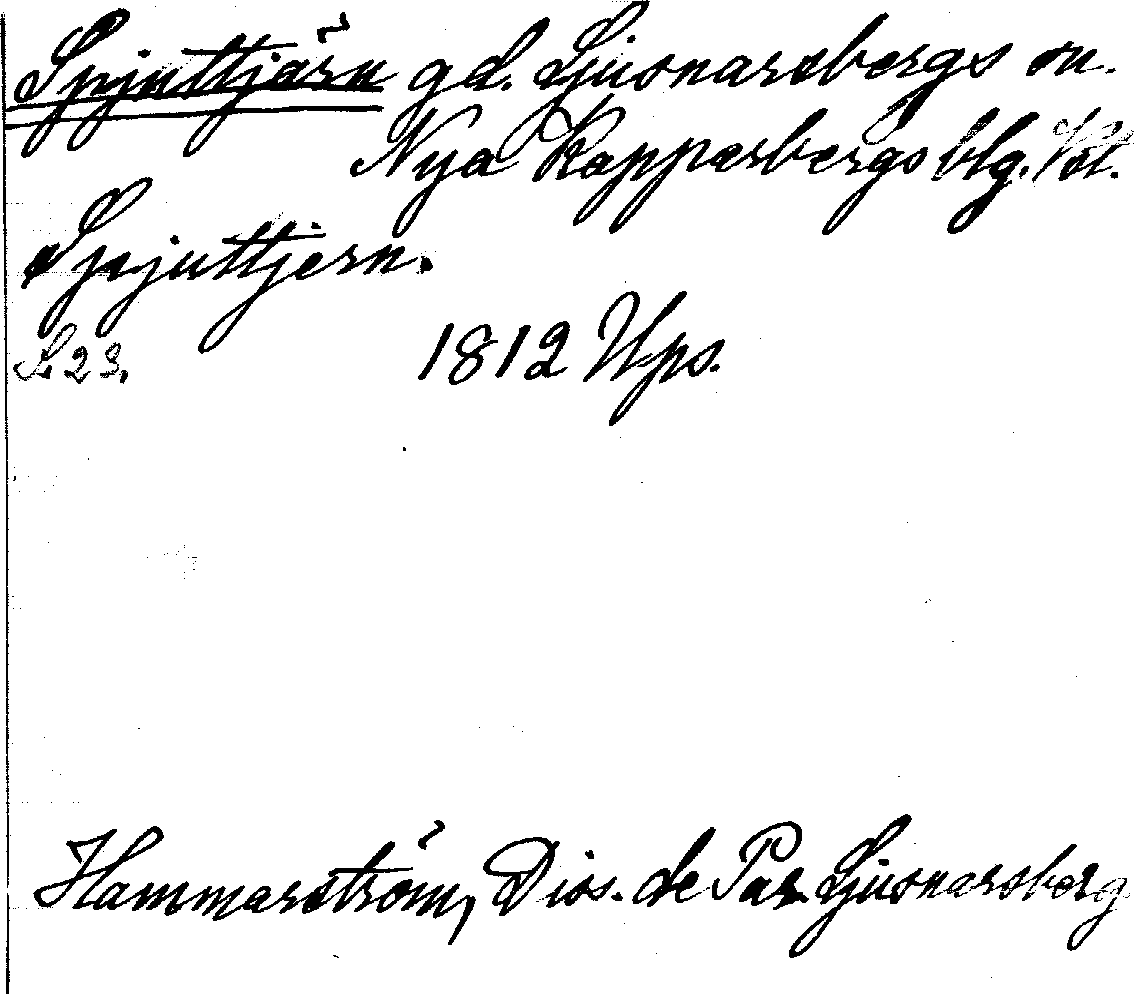 Spjuttjärn gd. Ljusnarsbergs sn.
Nya Kopparbergs blg. Vstl.
Spjuttjern.
S. 23. 1812 Ups.
Hammarström, Diss. de Par. Ljusnarsberg